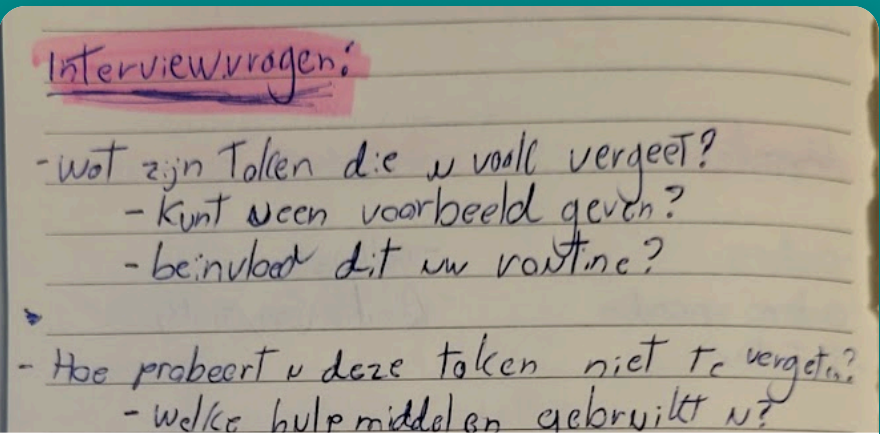 Interviewvragen:
- Wat zijn Taken die u vaak vergeet?
- Kunt u een voorbeeld geven?
- beïnvloed dit uw routine?
- Hoe probeert u deze taken niet te vergeten?
- Welke hulpmiddelen gebruikt u?